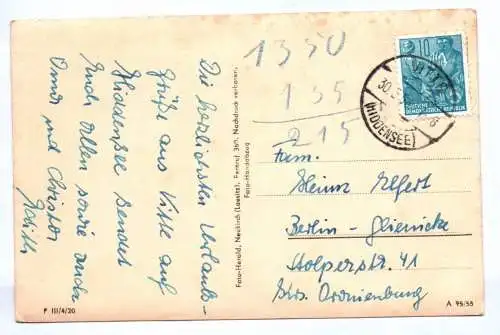 Die herzlichsten Urlaubs-
grüße aus Vitte auf
Hiddensee sendet
Euch allen sowie auch
Omi und Christon
Edith
F III/4/20
Foto-Herold, Neukirch (Lausitz), Fernruf 369, Nachdruck verboten.
Foto-Handabzug
1350
135
215
10
DEUTSCHE
DEMOKRATISCHE REPUBLIK
VITTE
30.
(HIDDENSEE)
Fam.
Heinz Elfert
Berlin - Glienicke
Stolperstr. 41
Krs. Oranienburg
A 95/55